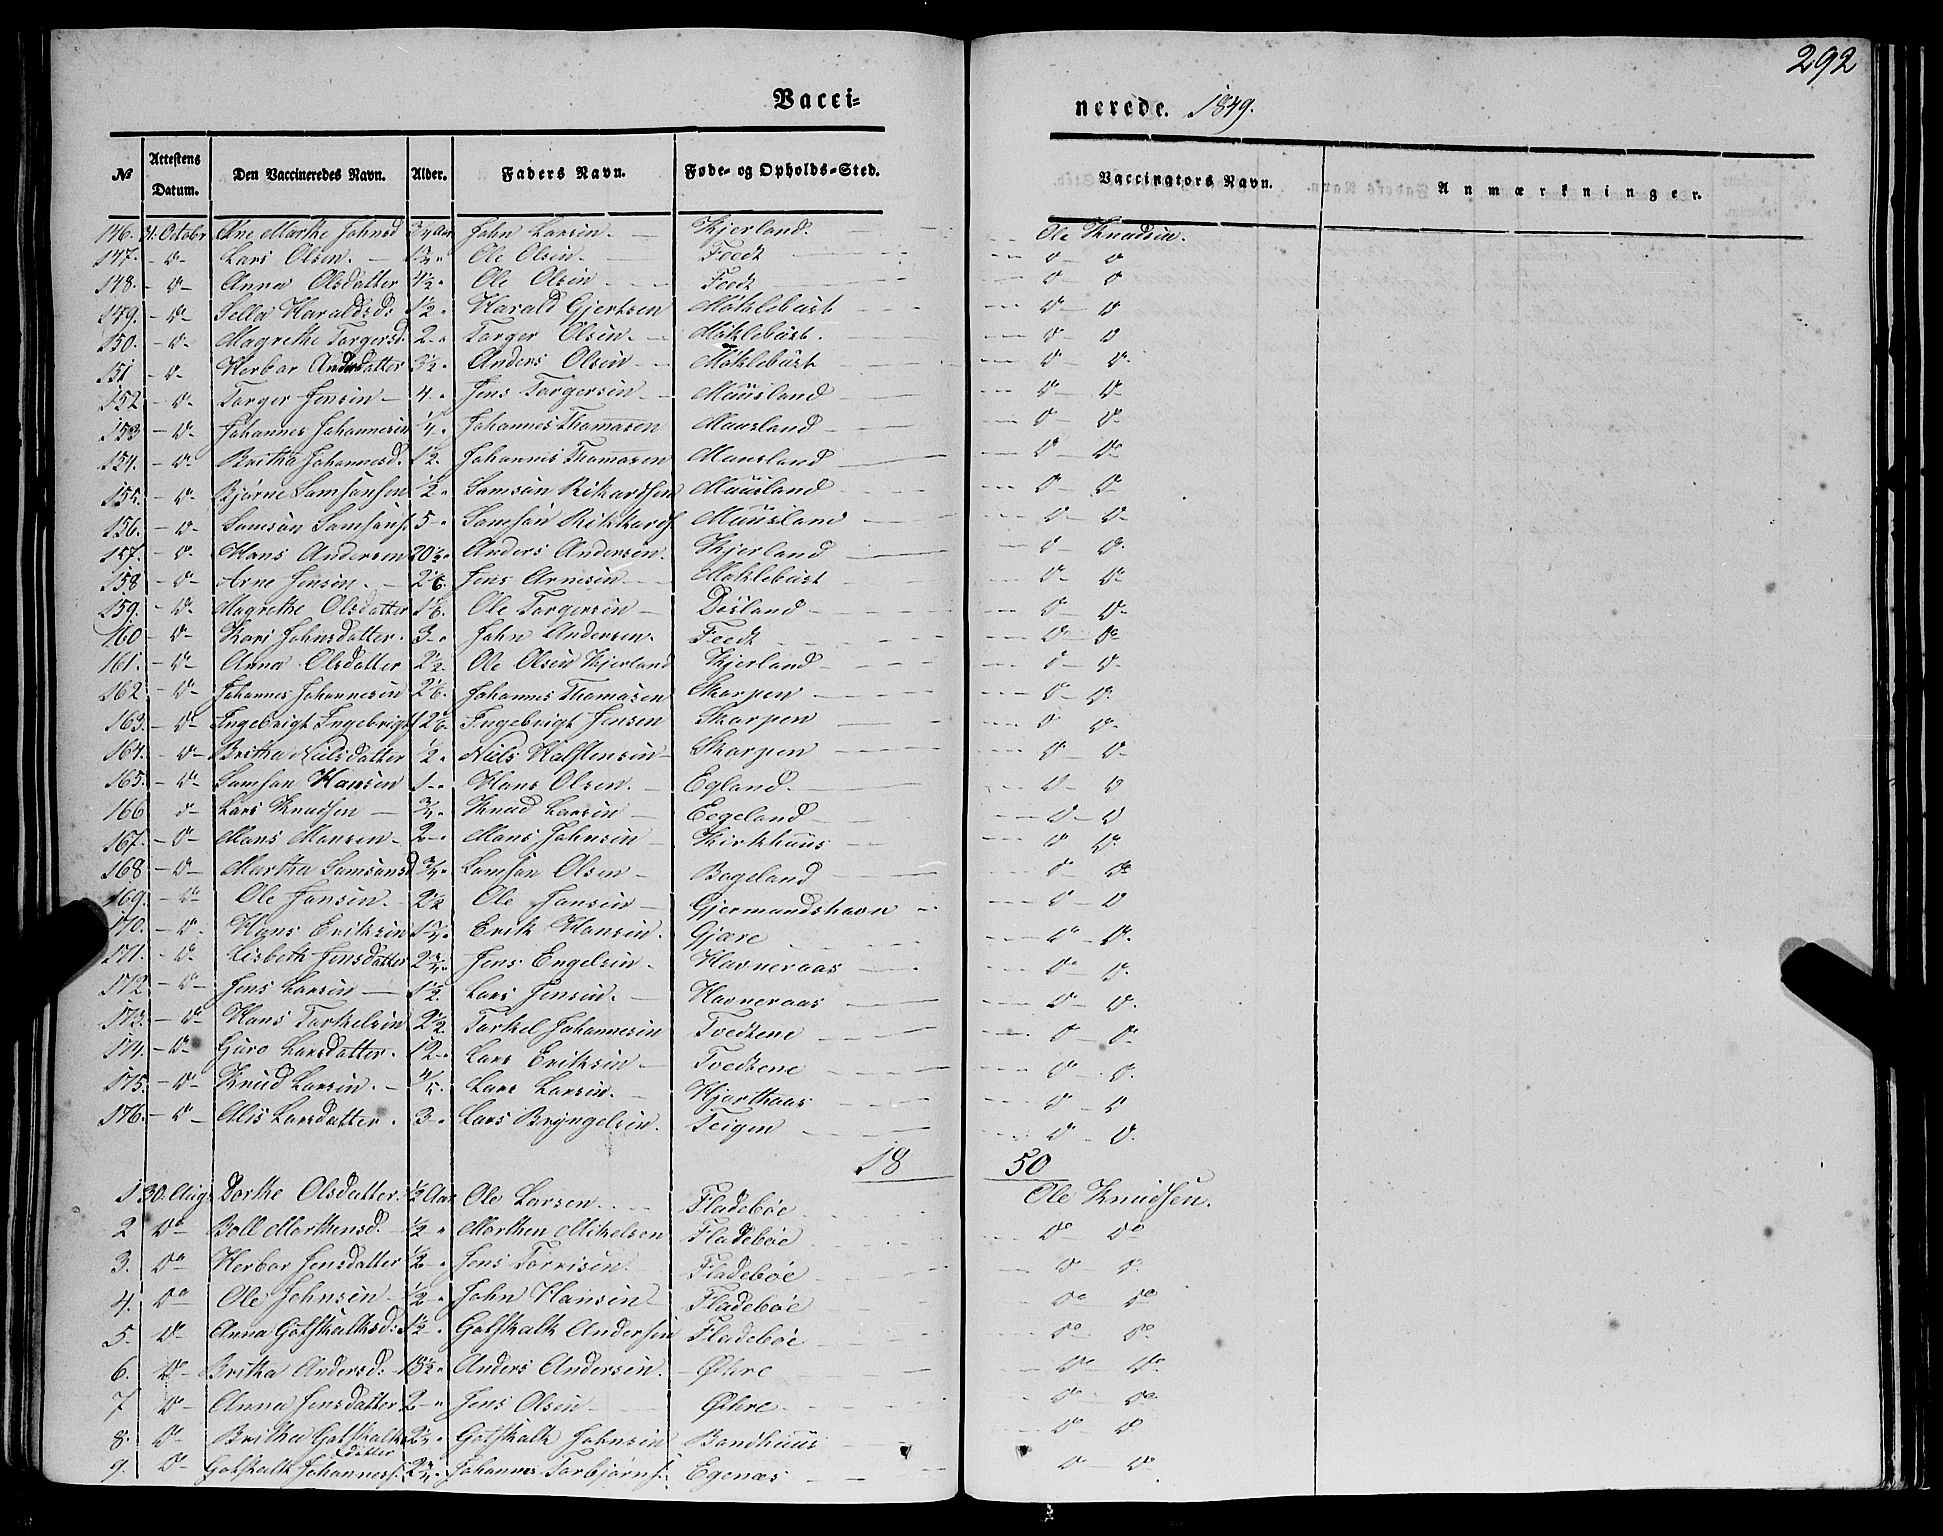 292
Vacci- nerede. 1849.
№ Attestens Datum. Den Vaccineredes Navn. Alder. Faders Navn. Føde- og Opholds-Sted. Vaccinators Navn. Anmærkninger.
146. 31. Octobr Ane Marthe Johnsd 3/4 Aar John Larsen. Kjerland. Ole Knudsen.
147. - d- Lars Olsen. Ole Olsen. Foedt d d
148. - d- Anna Olsdatter 4 1/2 Ole Olsen Foedt d d
149. - d- Sella Haraldsd: 1 1/2 Harald Gjertsen Møklebust d d
150. - d- Magrethe Torgersd. 2 - Torger Olsen. Møklebust. d d
151 - d- Herbor Andersdatter 3 1/2 Anders Olsen Møklebust d d
152 - d- Torger Jensen 4. Jens Torgersen Muusland d d
153 - d- Johannes Johannesen 1/4. Johannes Thomasen Muusland d d
154. - d- Britha Johannesd. 1 1/2. Johannes Thomasen Muusland d do
155. - d- Bjørne Samsonsen 1/2 Samson Rikardsen Muusland d d
156. - d- Samson Samsons. 5 - Samson Rikkards Muusland d d
157. - d- Hans Andersen 20 1/2 Anders Andersen. Kjerland d d
158 - d- Arne Jensen. 2 1/6. Jens Arnesen Møklebust d d
159. - d- Magrethe Olsdatter 1 1/6. Ole Torgersen Døsland d d
160 - d- Kari Johnsdatter. 3 - John Andersen. Foedt d do
161. - d- Anna Olsdatter 2 1/2 Ole Olsen Kjerland Kjerland d d
162 - d- Johannes Johannesen 2 1/6. Johannes Thomasen Skorpen d d
163. - d- Ingebrigt Ingebrigt Ingebrigt Jensen Skorpen d d
164. - d- Britha Nielsdatter 1/2 Niels Halstensen Skorpen d d
165. - d- Samson Hansen 1 - Hans Olsen. Egland. d d
166 d- Lars Knudsen 3/4 Knud Larsen Eegeland d d
167. - d- Mons Monsen 2 - Mons Johnsen Kirkhuus d d
168 - d- Martha Samsonsd 3/4 Samson Olsen Bogeland d do
169. - d Ole Jonsen. 2 1/2 Ole Jonsen Gjermundshavn d d
170. - d. Hans Eriksen 1 3/4 Erik Hansen. Gjære d d.
171. - d- Lisbeth Jensdatter 2 3/4 Jens Engelsen Havneraas d d
172. - d- Jens Larsen 1 1/2. Lars Jensen. Havneraas d d.
173. - d- Hans Torkelsen 2 1/2. Torkel Johannesen Tvedtene d d
174. - d- Guro Larsdatter. 12 - Lars Eriksen Tvedtene d d.
175. - d- Knud Larsen. 4/5 Lars Larsen. Hjorthaas d d
176. - d- Alis Larsdatter. 3 - Lars Bryngelsen. Teigen d d.
18 50
1 30. Aug. Dorthe Olsdatter 1/2 Aar Ole Larsen Fladebøe Ole Knudsen.
2 do Boll Morthensd. 1/2 Morthen Mikelsen Fladebøe do do
3. do Herbor Jensdatter 1/2 Jens Torrisen. Fladebøe d d
4. do Ole Johnsen 1/2 John Hansen Fladebøe do do
5. d- Anna Gotskalksd: 1 1/2 Gotskalk Andersen Fladebøe do do
6. do Britha Andersd: 15 1/2 Anders Andersen. Øthre do do
7 do Anna Jensdatter 2 - Jens Olsen Øthre do do
8. do Britha Gotskalks datter Gotskalk Johnsen Bondhuus d d
9. d- Gotskalk Johanness. 2 3/4 Johannes Torbjørns. Egenæs d d